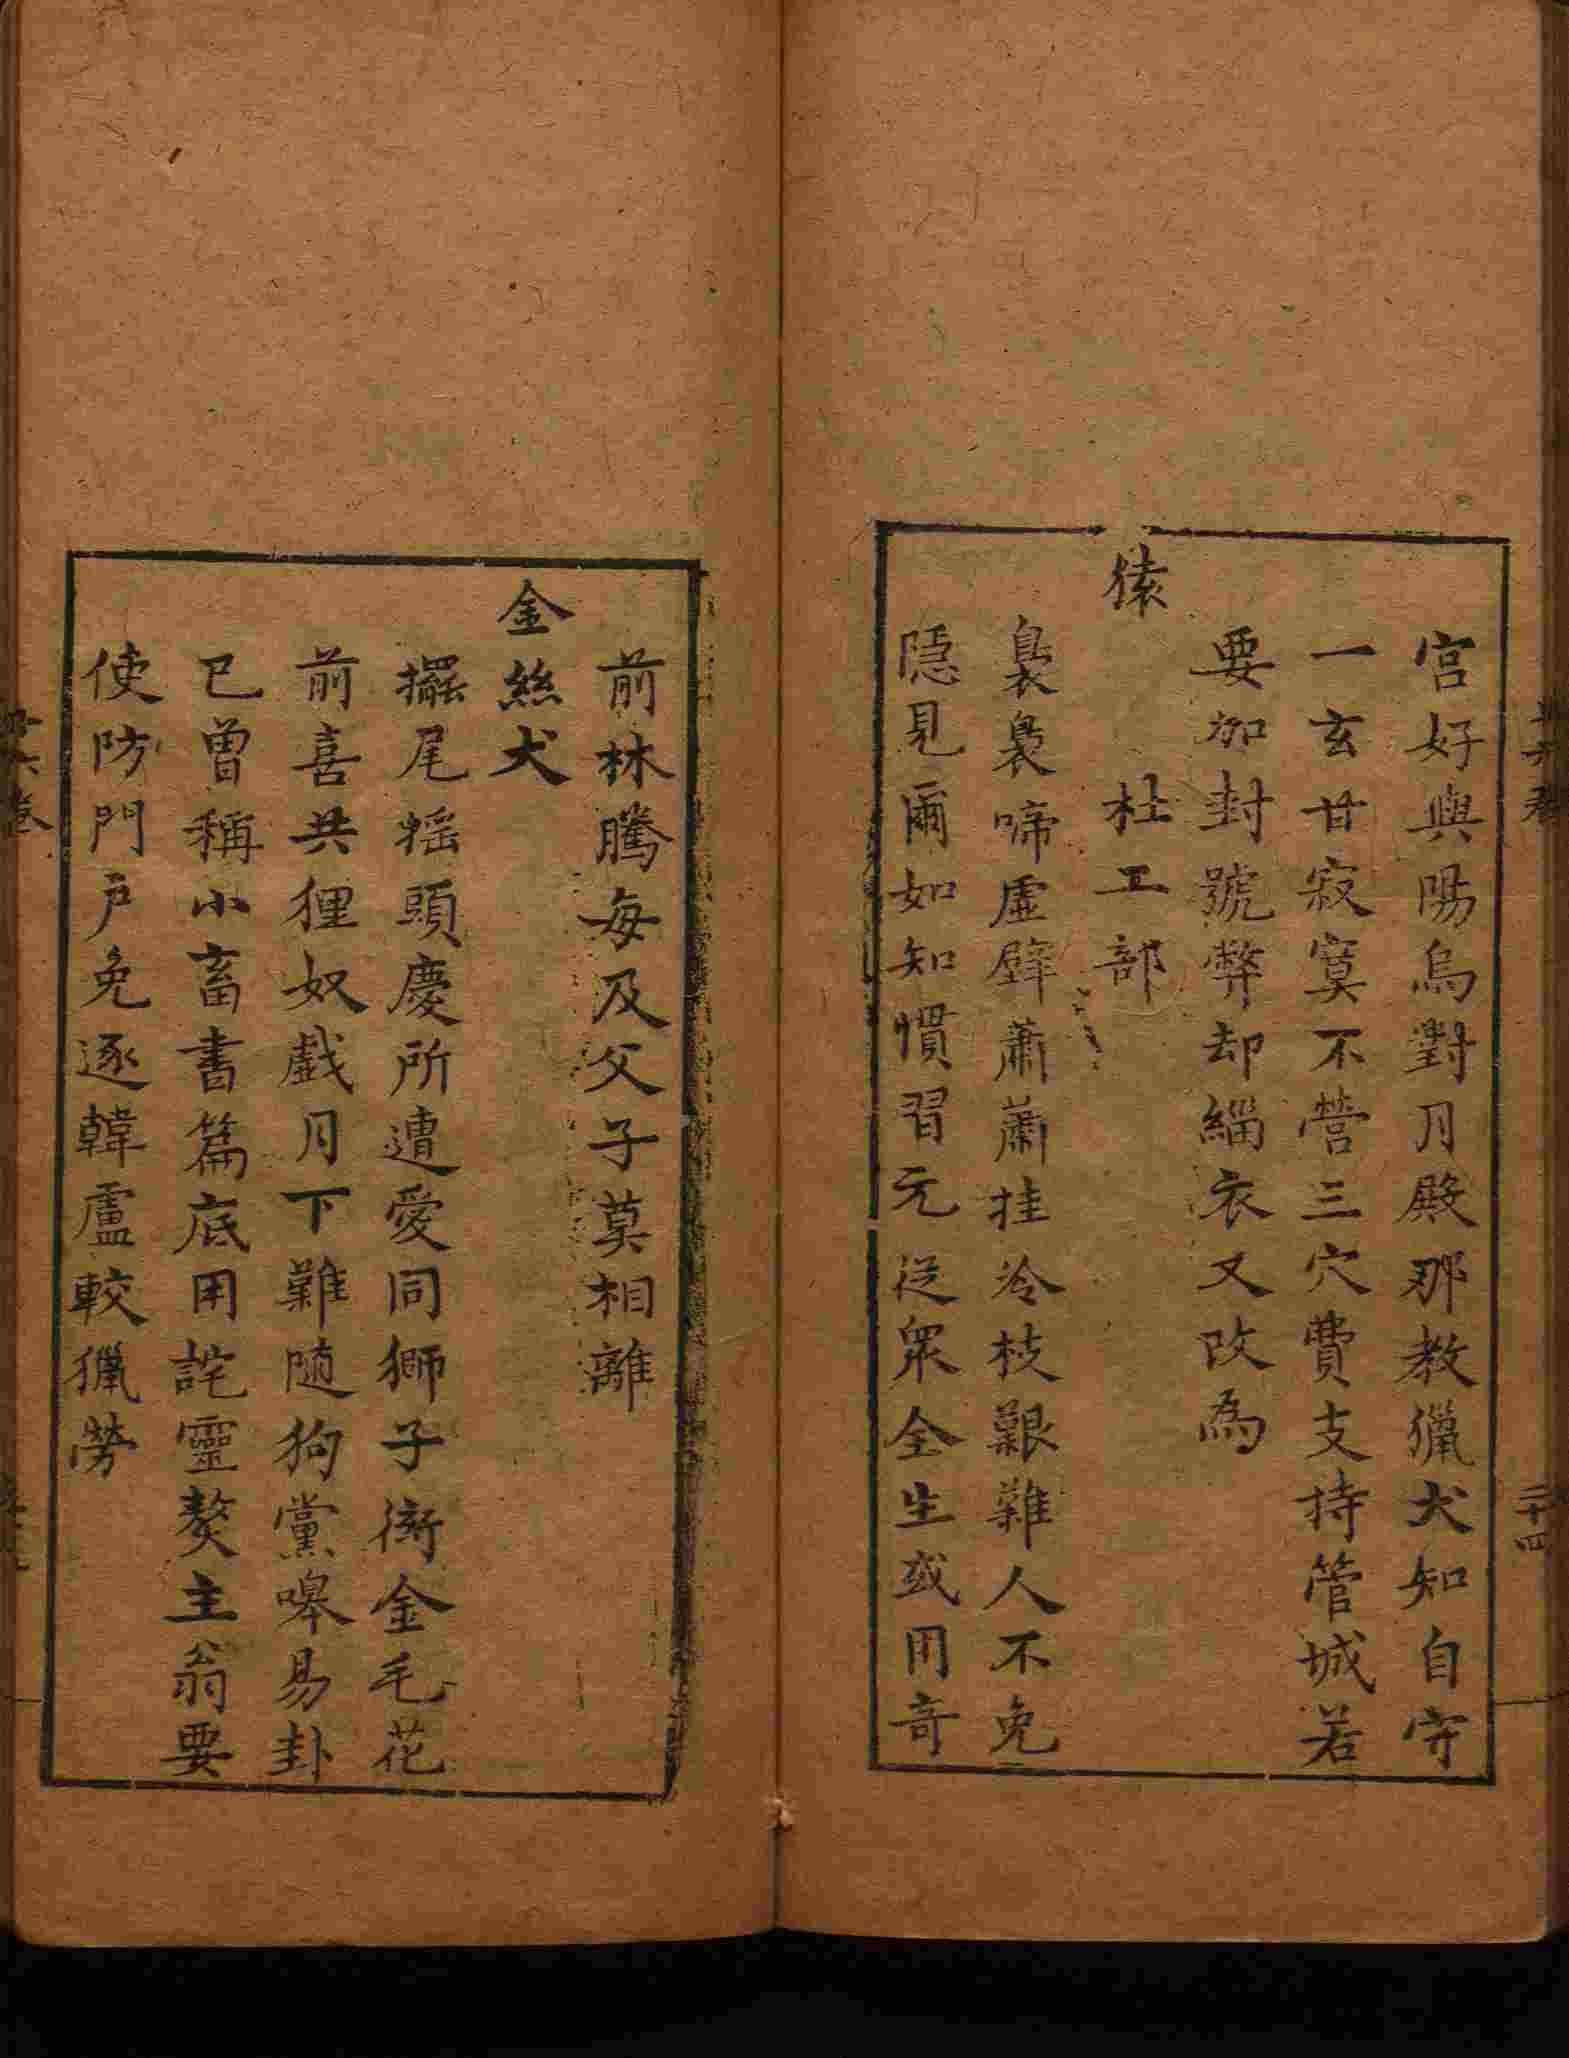 宮好與陽烏對月殿那教獵犬知自守
一玄甘寂寞不營三穴費支持管城若
要加封號弊却緇衣又改為
猿
杜工部
裊裊啼虛壁蕭蕭挂冷枝艱難人不免
隱見爾如知慣習元從眾全生或用奇
前林騰每及父子莫相離
金絲犬
擺尾摇頭慶所遭愛同獅子衒金毛花
前喜共狸奴戲月下難随狗黨嘷易卦
已曾稱小畜書篇底用詫靈獒主翁要
使防門戶免逐韓盧較獵勞
二十四